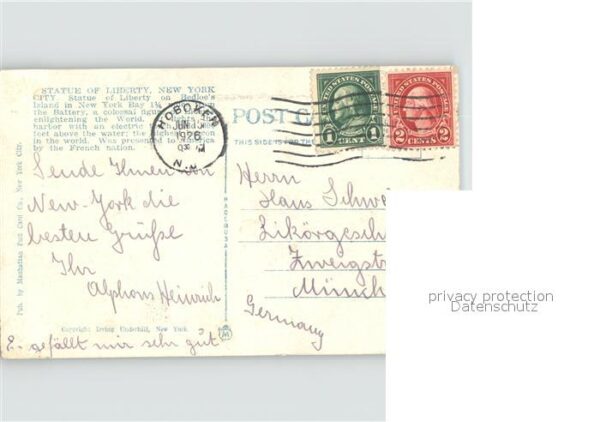 STATUE OF LIBERTY, NEW YORK
CITY. Statue of Liberty on Bedloe's
Island in New York Bay 1¾
the Battery, a colossal figure
enlightening the World. Lights the
harbor with an electric
feet above the water; the highest
in the world. Was presented to America
by the French nation.
HOBOKEN
JUN
1926
N.J.
POST C
THIS SIDE
UNITED STATES POSTAGE
1 CENT 1
UNITED STATES POSTAGE
2 CENTS 2
Sende Ihnen von
New-York die
besten Grüße
Ihr
Alphons Heinrich
E. gefällt mir sehr gut
Herrn
Hans Schwei
Likörgesch
Zweigst
Münch
Germany
Pub. by Manhattan Post Card Co., New York City.
MADE IN U.S.A.
Copyright Irving Underhill, New York
privacy protection
Datenschutz